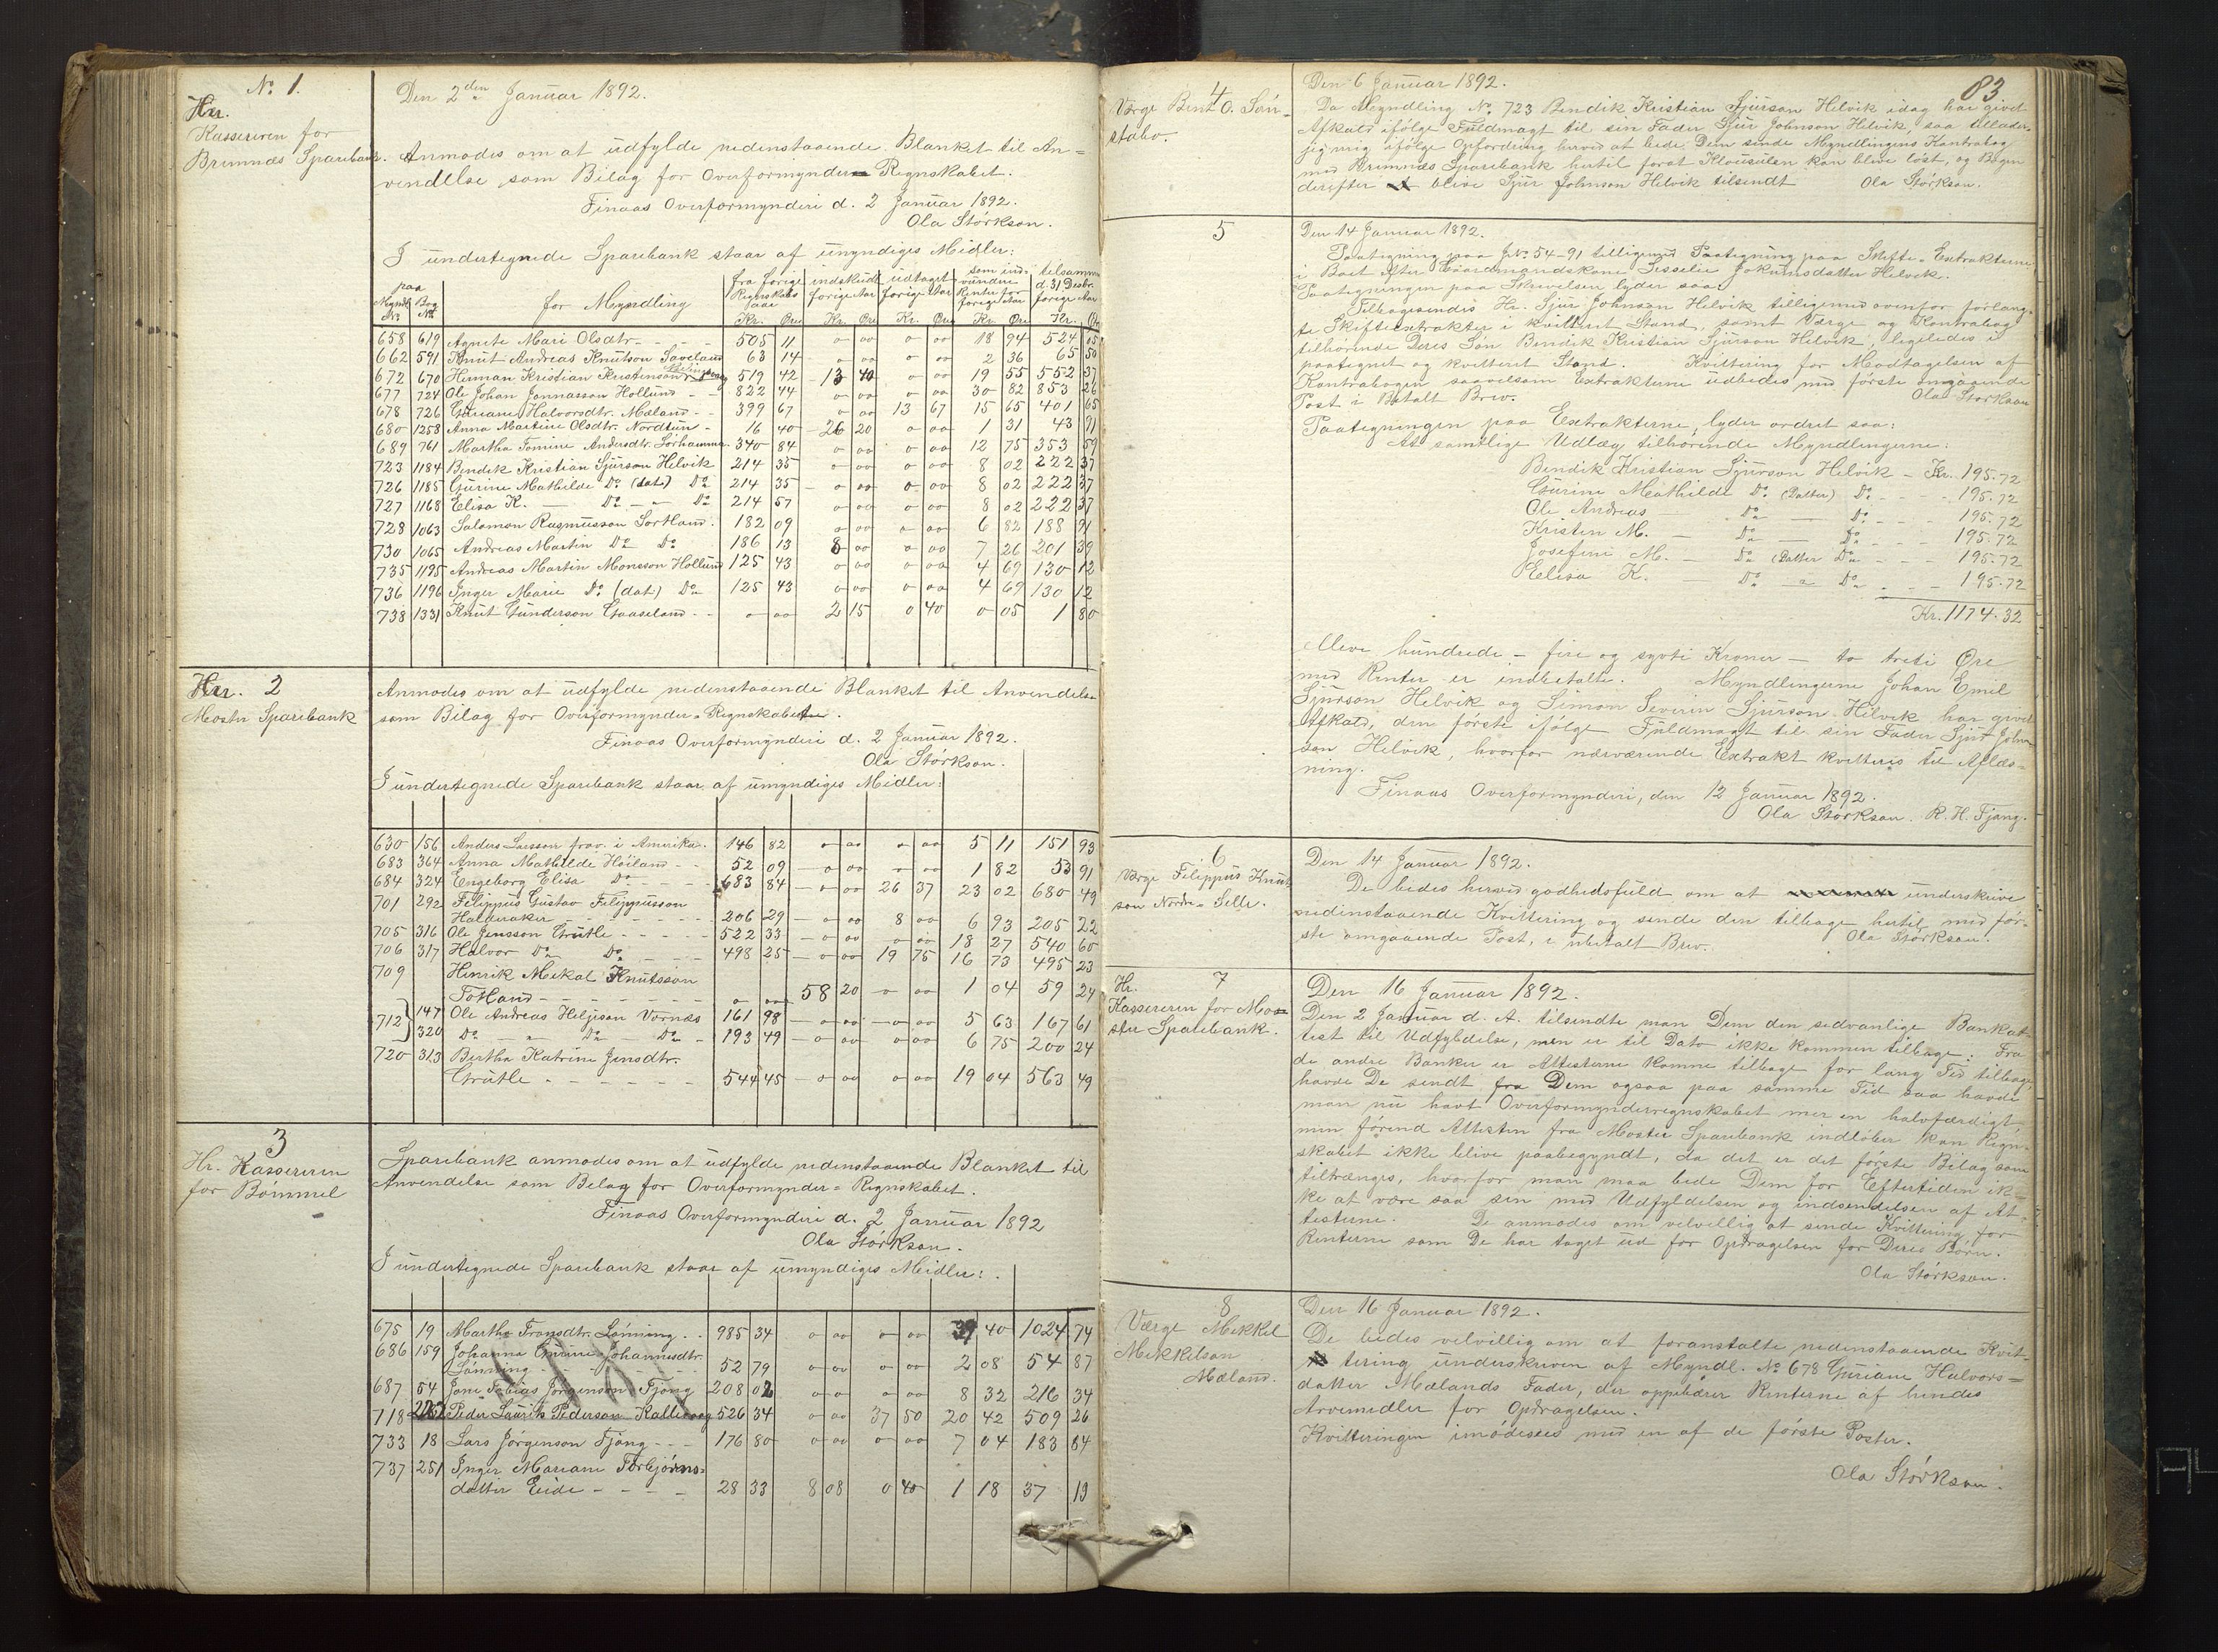 No 1.
Hr.
Kassereren for
Brumnæs Sparebank.
Den 2den Januar 1892.
Anmodes om at udfylde nedenstaaende Blanket til An=
vendelse som Bilag for Overformynder= Regnskabet.
Finaas Overformynderi d. 2 Januar 1892.
Ola Størkson.
I undertegnede Sparebank staar af umyndiges Midler:
paa
Myndl. No Bog No for Myndling fra forige Regnskabs aar indskudt forige Aar udtaget forige Aar som ind- vundne Renter for forige Aar tilsamm. d. 31 Desbr. forige Aar
Kr. Øre Kr. Øre Kr. Øre Kr. Øre Kr. Ør
658 619 Agnete Mari Olsdtr. - - - 505 11 o oo o oo 18 94 524 05
662 591 Knut Andreas Knutson Saveland 63 14 o oo o oo 2 36 65 50
672 670 Herman Kristian Kristenson 519 42 13 40 o oo 19 55 552 37
677 724 Ole Johan Jonnasson Hollund - - 822 44 o oo o oo 30 82 853 26
678 726 Guriane Halvorsdtr. Mæland - - 399 67 o oo 13 67 15 65 401 65
680 1258 Anna Martine Olsdtr. Nordtun - 16 40 26 20 o oo 1 31 43 91
689 761 Martha Tomine Andersdtr. Sørhammer 340 84 o oo o oo 12 75 353 59
723 1184 Bendik Kristian Sjurson Helvik 214 35 o oo o oo 8 02 222 37
726 1185 Gurine Mathilde Do (dat.) Do 214 35 o oo o oo 8 02 222 37
727 1168 Elisa K. — Do — Do 214 57 o oo o oo 8 02 222 37
728 1063 Salamon Rasmusson Sortland. 182 09 o oo o oo 6 82 188 91
730 1065 Andreas Martin Do Do 186 13 8 oo o oo 7 26 201 39
735 1195 Andreas Martin Monsson Hollund 125 43 o oo o oo 4 69 130 12
736 1196 Inger Marie Do (dat.) Do 125 43 o oo o oo 4 69 130 12
738 1331 Knut Gunderson Gaaseland - - o oo 2 15 0 40 0 05 1 80
Hr. 2
Moster Sparebank
Anmodes om at udfylde nedenstaaende Blanket til Anvendelse
som Bilag for Overformynder= Regnskabet.
Finaas Overformynderi d. 2 Januar 1892.
Ola Størkson.
I undertegnede Sparebank staar af umyndiges Midler:
630 156 Anders Larsson frav. i Amerika. 146 82 o oo o oo 5 11 151 93
683 364 Anna Mathilde Høiland - - 52 09 o oo o oo 1 82 53 91
684 324 Engeborg Elisa Do - - - 683 84 o oo 26 37 23 02 680 49
701 292 Filippus Gustav Filippusson
Halderaker - - - - - - 206 29 o oo 8 oo 6 93 205 22
705 316 Ole Jensson Grutle - - - - - 522 33 o oo o oo 18 27 540 60
706 317 Halvor Do Do - - - - 498 25 o oo 19 75 16 73 495 23
709 Henrik Mekal Knutsson
Totland - - - - - - - o oo 58 20 o oo 1 04 59 24
712 147 Ole Andreas Heljeson Vornæs 161 98 o oo o oo 5 63 167 61
320 Do - Do - Do - 193 49 o oo o oo 6 75 200 24
720 313 Bertha Katrine Jensdtr.
Grutle - - - - - - 544 45 o oo o oo 19 04 563 49
3
Hr. Kassereren
for Bømmel
Sparebank anmodes om at udfylde nedenstaaende Blanket til
Anvendelse som Bilag for Overformynder= Regnskabet.
Finaas Overformynderi d. 2 Januar 1892
Ola Størkson.
I undertegnede Sparebank staar af umyndiges Midler:
675 19 Martha Transdtr. Lønning. - - 985 34 o oo o oo 39 40 1024 74
686 159 Johanna Gurine Johannesdtr.
Lønning - - - - - 52 79 o oo o oo 2 08 54 87
687 54 Jone Tobias Jørgenson Fjong 208 02 o o o oo 8 32 216 34
718 Peder Laurits Pederson Kallevaag 526 34 o oo 37 50 20 42 509 26
733 18 Lars Jørgenson Fjong - - - 176 80 o oo o oo 7 04 183 84
737 251 Inger Mariane Torbjørns=
datter Eide - - - - 28 33 8 08 0 40 1 18 37 19
83
4
Værge Bent O. Søn-
stabo.
Den 6 Januar 1892.
Da Myndling No. 723 Bendik Kristian Sjurson Helvik idag har givet
Afkald ifølge Fuldmagt til sin Fader Sjur Johnson Helvik, saa tillader
jeg mig ifølge Opfordring herved at bede Dem sende Myndlingens Kontrabog
med Brumnæs Sparebank hertil forat Klausulen kan blive løst, og Bogen
derefter blive Sjur Johnson Helvik tilsendt Ola Størkson.
5
Den 14 Januar 1892.
Paategning paa JNo. 54-91 tilligemed Paategning paa Skifte= Extrakterne
i Boet efter Gaardmandskone Sisselie Jokumsdatter Helvik.
Paategningen paa Skrivelsen lyder saa:
Tilbagesendes Hr. Sjur Johnson Helvik tilligemed ovenfor forlang-
te Skifteextrakter i kvitteret Stand, samt Værge og Kontrabog
tilhørende Deres Søn Bendik Kristian Sjurson Helvik, ligeledes i
paategnet og kvitteret Stand. Kvittering for Modtagelsen af
Kontrabogen saavelsom Extrakterne udbedes med første omgaaende
Post i Betalt Brev. Ola Størkson
Paategningen paa Extrakterne, lyder ordret saa:
At samtlige Udlæg tilhørende Myndlingerne:
Bendik Kristian Sjurson Helvik - Kr. 195.72
Gurine Mathilde Do. (Datter) Do. - - - 195.72
Ole Andreas — Do — Do. - - - 195.72
Kristen M. — Do — Do. - - - 195.72
Josefine M. — Do (Datter Do - - - 195.72
Elisa K. Do - " - Do - - - 195.72
Kr. 1174.32
elleve hundrede - fire og sytti Kroner - to treti Øre
med Renter er indbetalte. Myndlingerne Johan Emil
Sjurson Helvik og Simon Severin Sjurson Helvik har givet
Afkald, den første ifølge Fuldmagt til sin Fader Sjur John-
son Helvik, hvorfor nærværende Extrakt kvitteres til Aflæs=
ning.
Finaas Overformynderi, den 12 Januar 1892.
Ola Størkson. R. H. Fjong.
6
Værge Filippus Knut-
son Nordre= Selle.
Den 14 Januar 1892.
De bedes herved godhedsfuld om at underskrive
nedenstaaende Kvittering og sende den tilbage hertil med før-
ste omgaaende Post, i ubetalt Brev. Ola Størkson.
7
Hr.
Kassereren for Mo=
ster Sparebank.
Den 16 Januar 1892.
Den 2 Januar d. A. tilsendte man Dem den sedvanlige Bankat-
test til Udfyldelse, men er til Dato ikke kommen tilbage: Fra
de andre Banker er Attesterne komne tilbage for lang Tid tilbage,
havde De sendt fra Dem ogsaa paa samme Tid saa havde
man nu havt Overformynderregnskabet mer en halvfærdigt,
men førend Attesten fra Moster Sparebank indløber kan Regn-
skabet ikke blive paabegyndt, da det er det første Bilag som
tiltrænges, hvorfor man maa bede Dem for Eftertiden ik=
ke at være saa sen med Udfyldelsen og indsendelsen af At-
testerne. De anmodes om velvillig at sende Kvittering for
Renterne som De har taget ud for Opdragelsen for Deres Børn.
Ola Størkson.
8
Værge Mekkel
Mekkelson
Mæland.
Den 16 Januar 1892.
De bedes velvillig om at foranstalte nedenstaaende Kvit-
tering underskreven af Myndl. No 678 Guriane Halvors=
datter Mælands Fader, der oppebærer Renterne af hendes
Arvemidler for Opdragelsen.
Kvitteringen imødesees med en af de første Poster.
Ola Størkson.